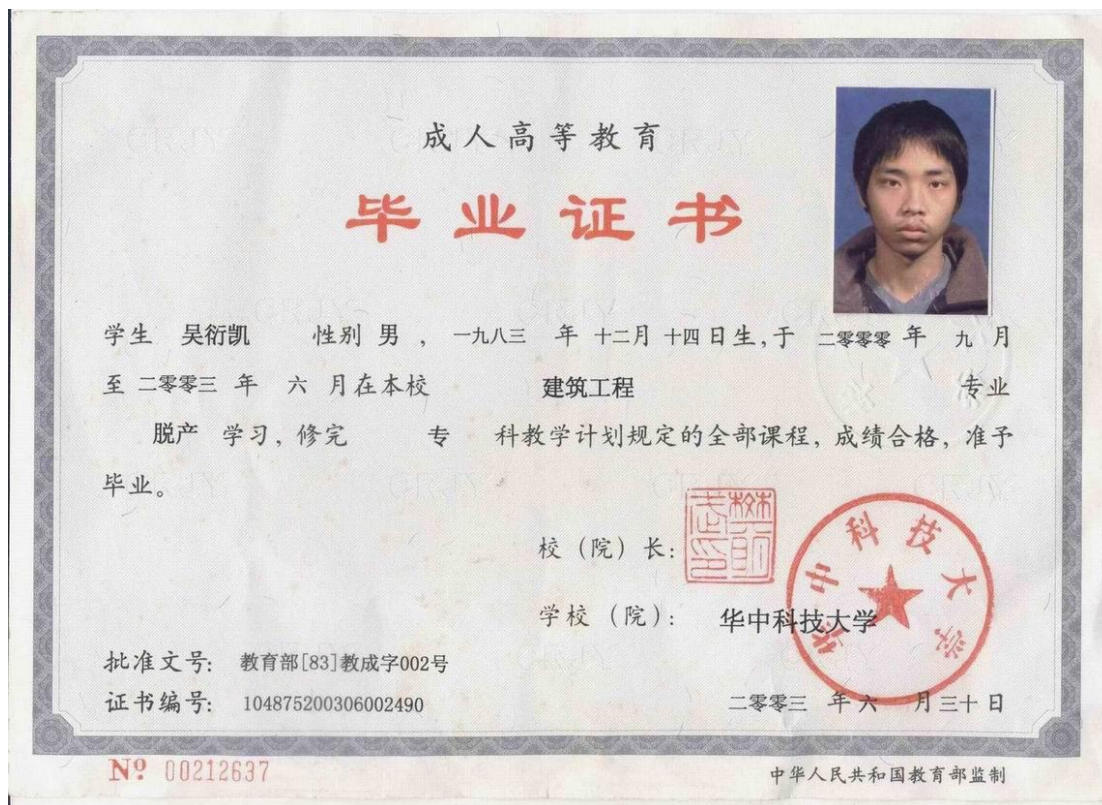 成人高等教育
毕业证书
学生 吴衍凯 性别 男 , 一九八三 年 十二月 十四日生,于 二零零零 年 九 月
至 二零零三 年 六 月在本校 建筑工程 专业
脱产 学习, 修完 专 科教学计划规定的全部课程, 成绩合格, 准予
毕业。
校(院)长:
樊明武印
学校(院): 华中科技大学
华中科技大学
批准文号: 教育部[83]教成字002号
证书编号: 104875200306002490
二零零三 年 六 月三十日
Nº 00212637
中华人民共和国教育部监制